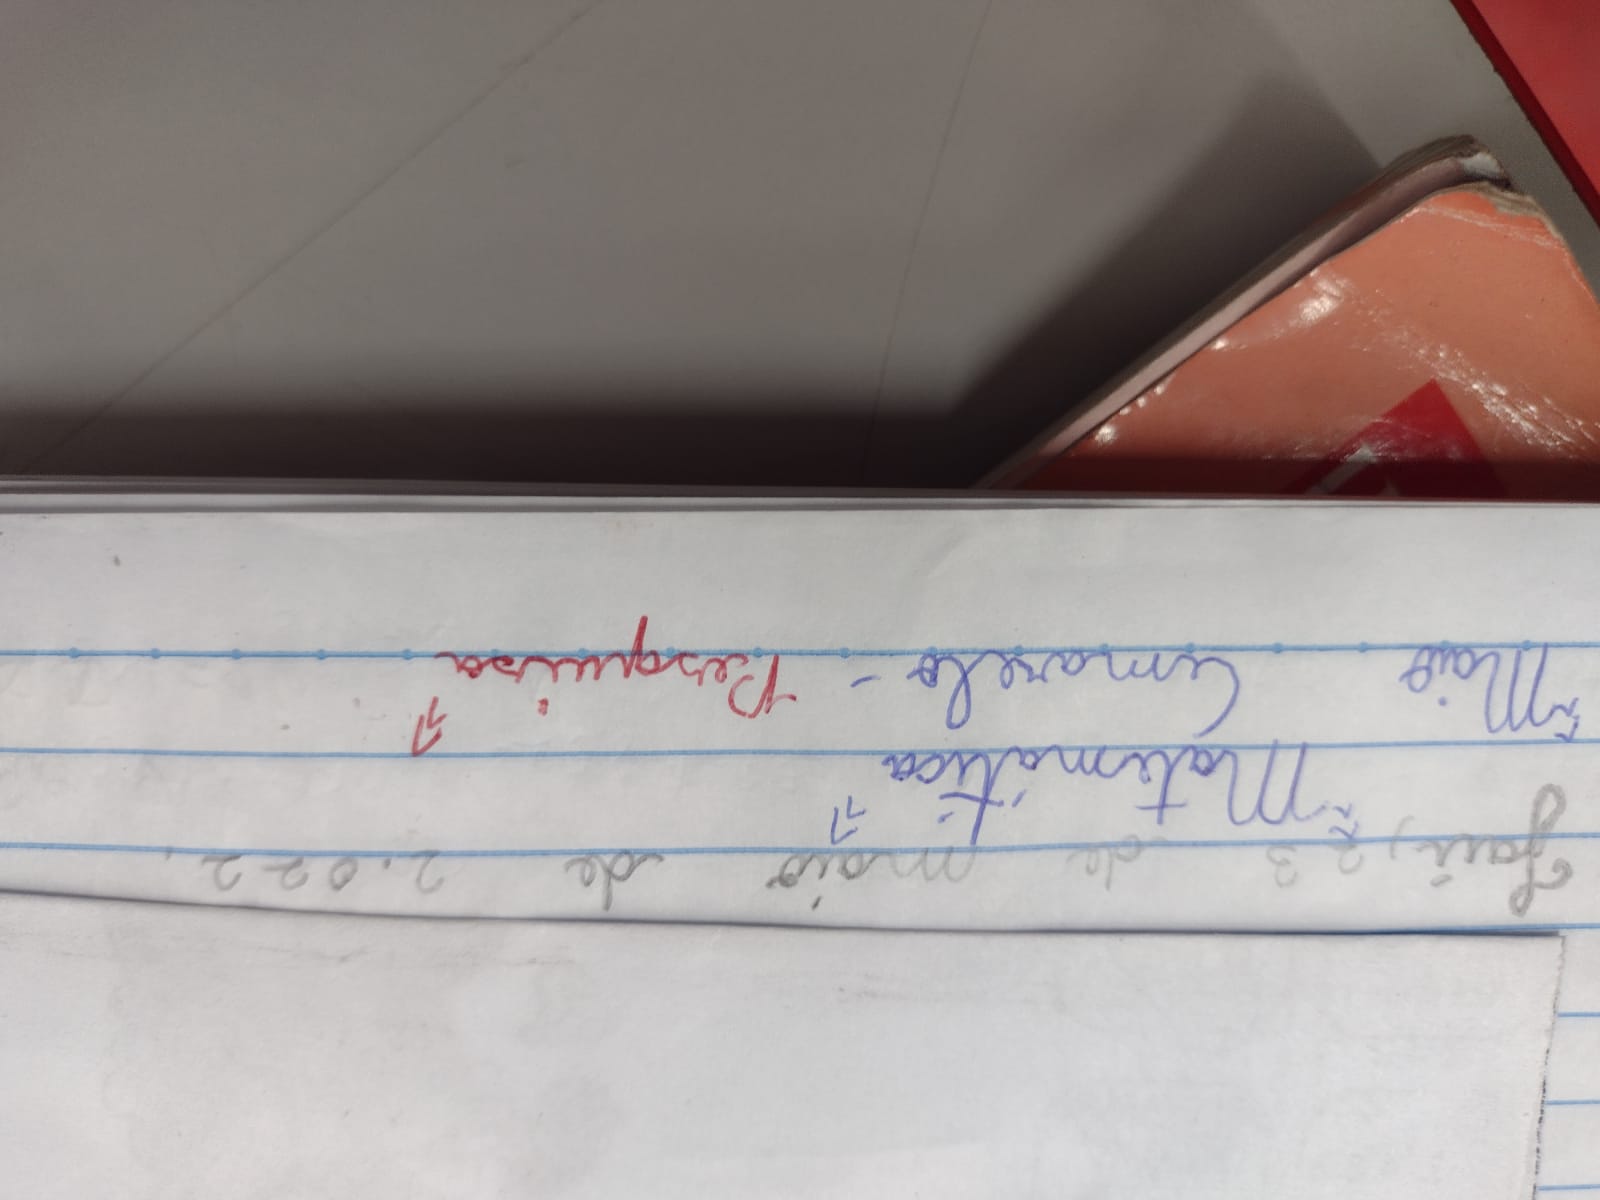 Jaú, 23 de maio de 2.022.
Matemática
Maio Amarelo - Pesquisa